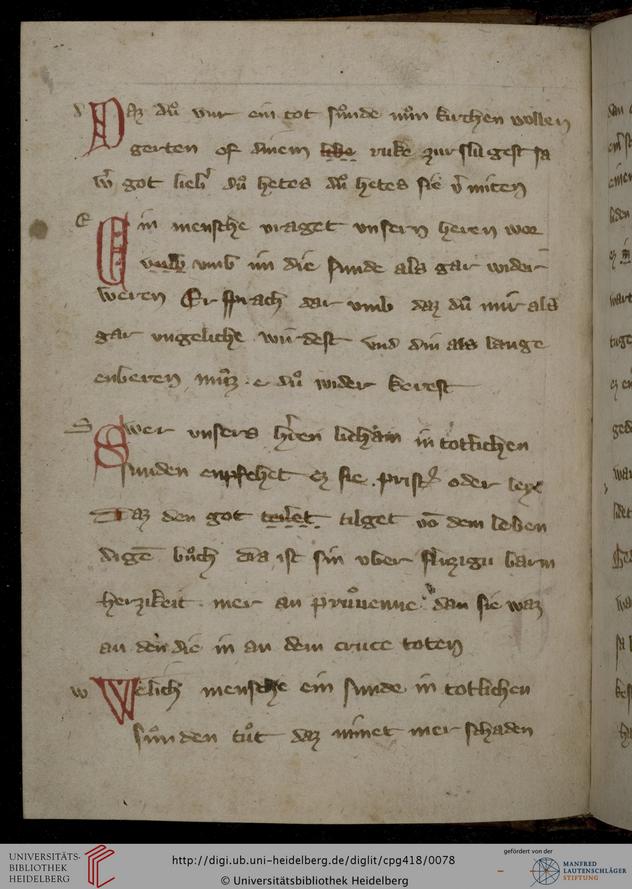 d Daz dů vur ein tot sůnde nům kirchen wollen
gerten of dinem libe ruke zur slugest ia
wͥ got liebͥ dů hetes dů hetes sie vͥmiten
E Ein mensche vraget vnsern heren wor
vmb vmb im die sunde als gar wider
weren Er sprach dar vmb daz dů mir als
gar vngeliche wůrdest vnd din als lange
enberen můz e dů wider kerest
S Swer vnsers hͥren lichām in totlichen
sunden enpfehet ez sie pristͥ oder leye
Daz den got tilget vō dem leben
digē bůch da ist sin vber flizigu barm
herzikeit mer an dan sie waz
an den die in an dem cruce toten
w Welich mensche ein sunde in totlichen
sůnden tůt daz nimet mer schaden
UNIVERSITÄTS-
BIBLIOTHEK
HEIDELBERG
http://digi.ub.uni-heidelberg.de/diglit/cpg418/0078
© Universitätsbibliothek Heidelberg
gefördert von der
MANFRED
LAUTENSCHLÄGER
STIFTUNG